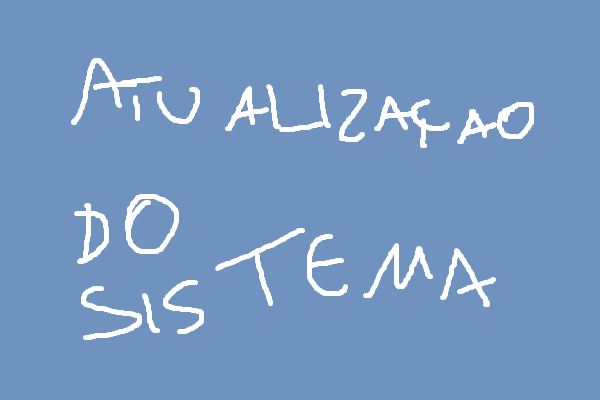 ATUALIZAÇAO
DO
SISTEMA